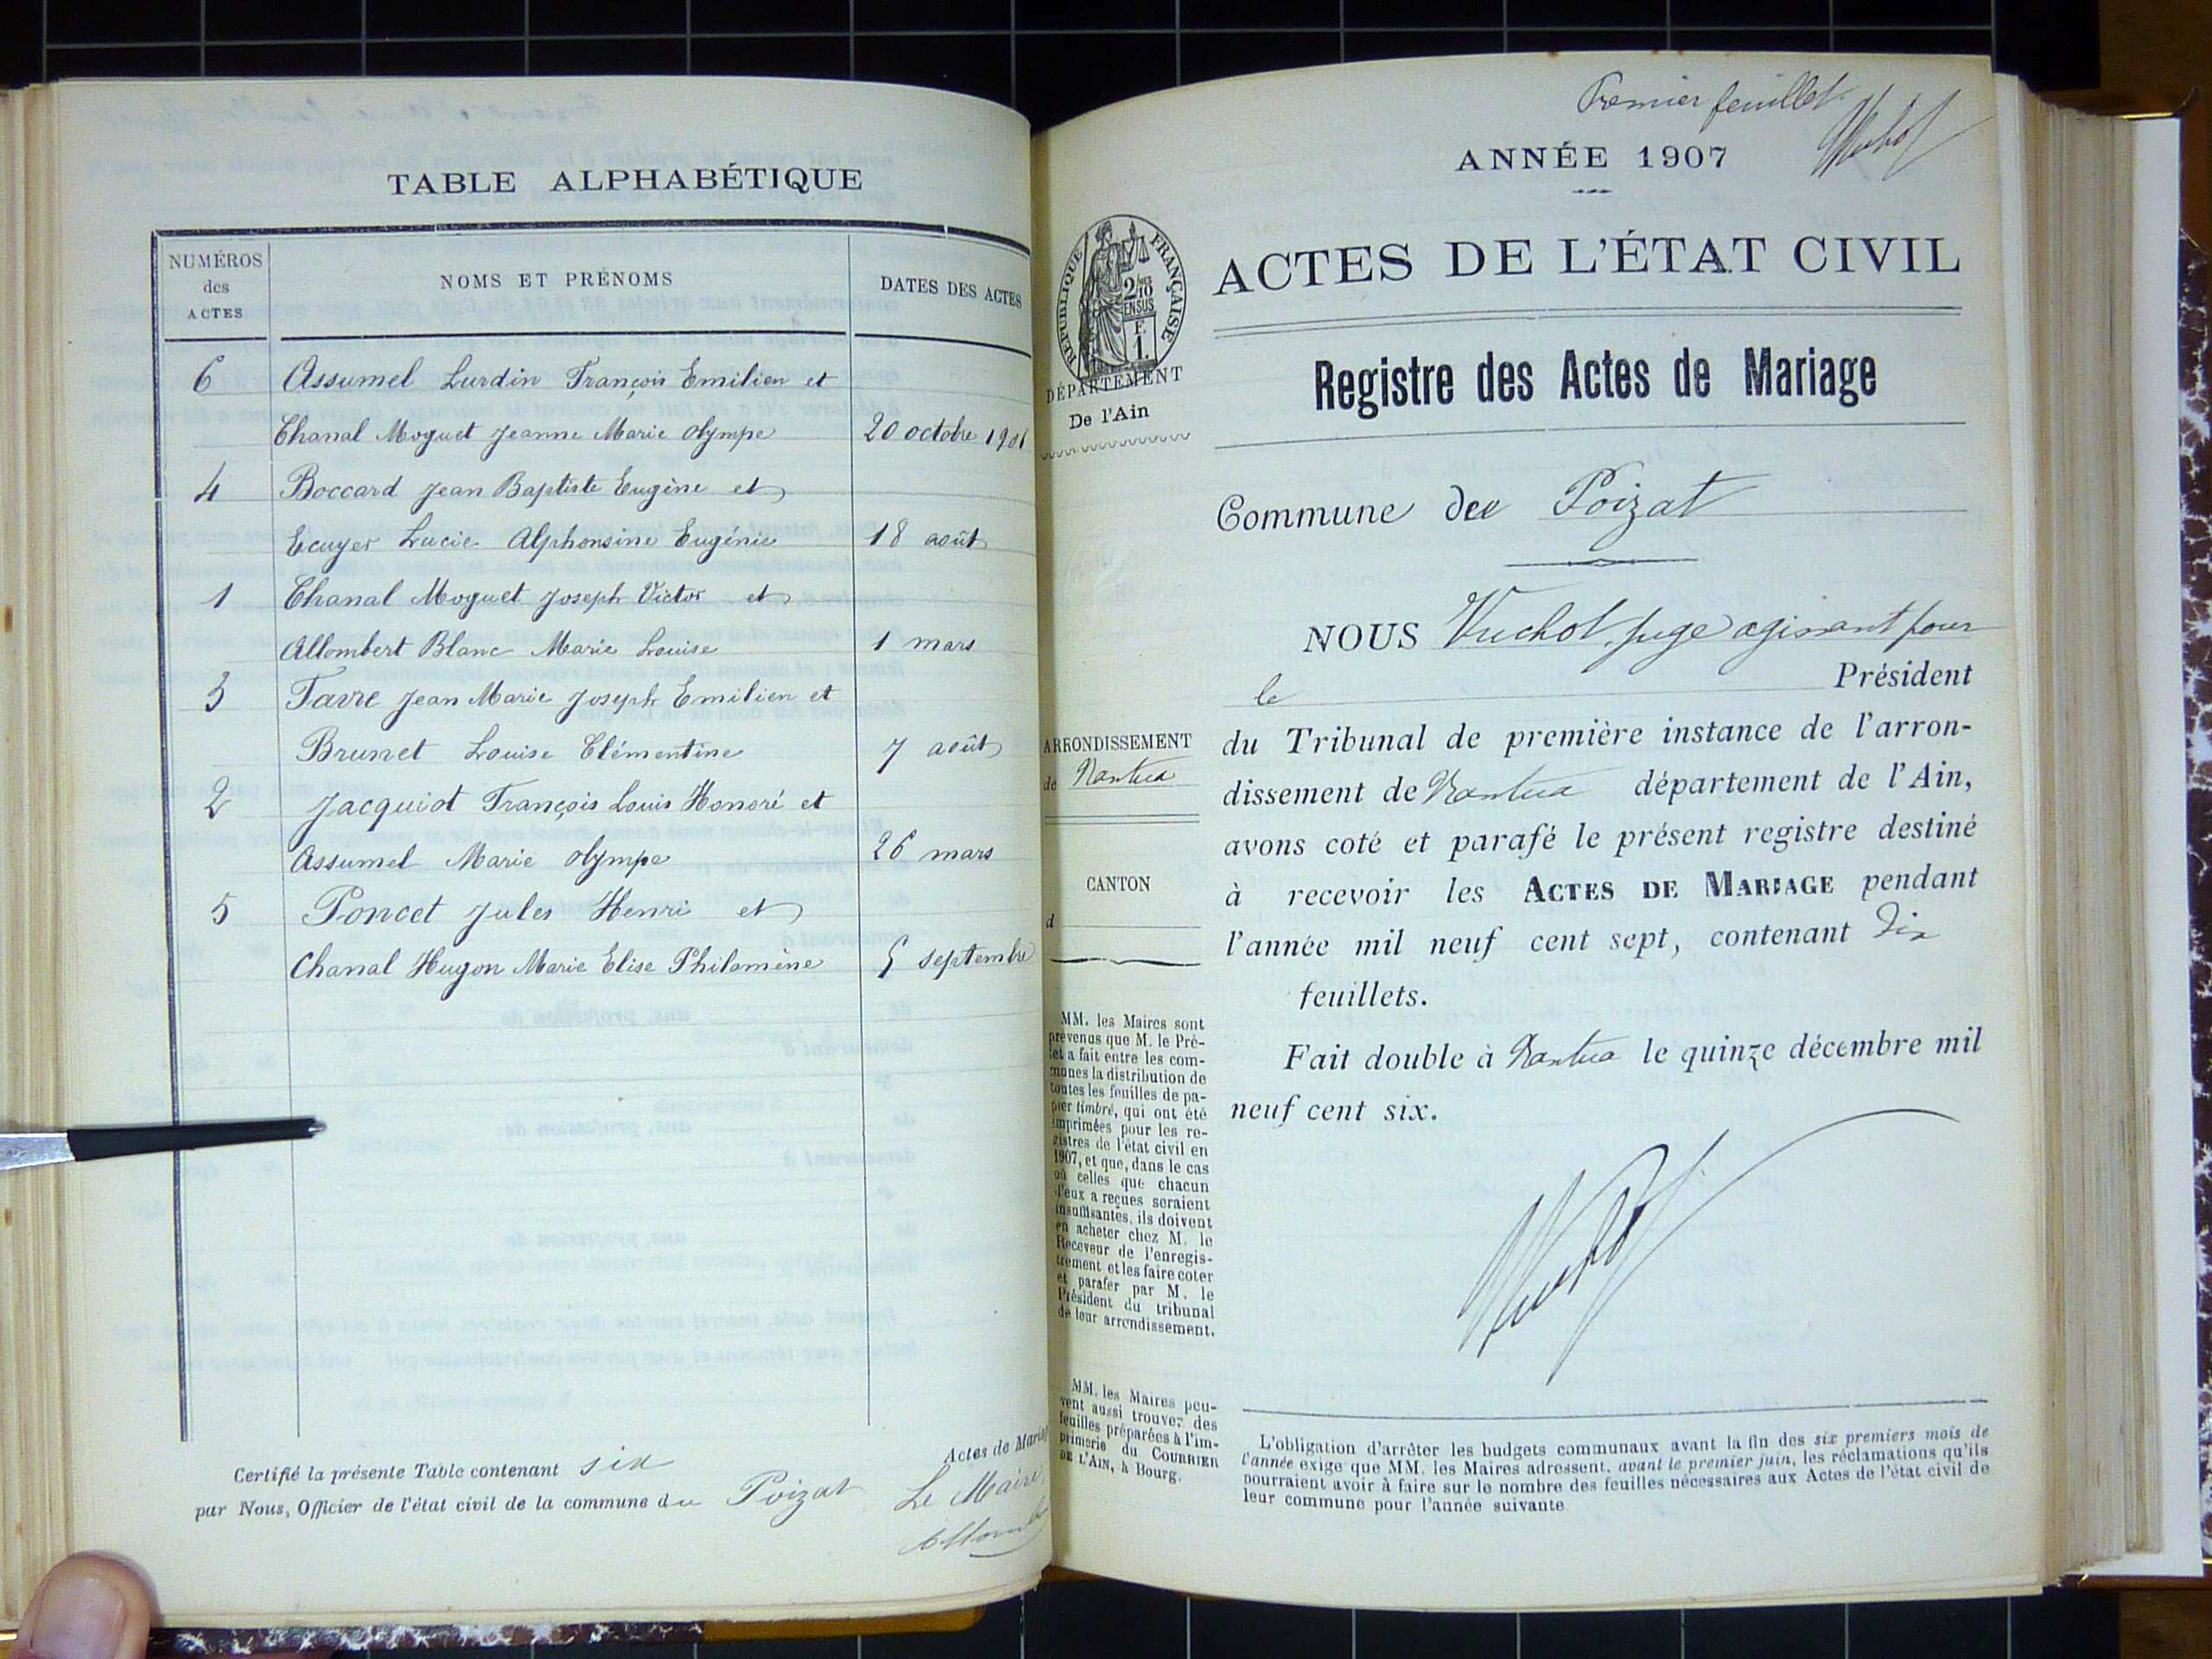 TABLE ALPHABÉTIQUE
NUMÉROS
des
ACTES
NOMS ET PRÉNOMS
DATES DES ACTES
6 Assumel Lurdin François Emilien et
Chanal Moguet Jeanne Marie Olympe 20 octobre
4 Boccard Jean Baptiste Eugène et
Ecuyer Lucie Alphonsine Eugénie 18 août
1 Chanal Moguet Joseph Victor et
Allombert Blanc Marie Louise 1 mars
3 Favre Jean Marie Joseph Emilien et
Brunet Louise Clémentine 7 août
2 Jacquiot François Louis Honoré et
Assumel Marie Olympe 26 mars
5 Poncet Jules Henri et
Chanal Hugon Marie Elise Philomène 5 septembre
Certifié la présente Table contenant six Actes de Mariage
par Nous, Officier de l'état civil de la commune du Poizat Le Maire,
Premier feuillet
ANNÉE 1907
RÉPUBLIQUE FRANÇAISE
2/10
EN SUS
F.
1.
ACTES DE L'ÉTAT CIVIL
DÉPARTEMENT
De l'Ain
Registre des Actes de Mariage
Commune du Poizat
NOUS Vuchot, juge agissant pour
le Président
ARRONDISSEMENT
de Nantua
CANTON
d
du Tribunal de première instance de l'arron-
dissement de Nantua département de l'Ain,
avons coté et parafé le présent registre destiné
à recevoir les ACTES DE MARIAGE pendant
l'année mil neuf cent sept, contenant Dix
feuillets.
Fait double à Nantua le quinze décembre mil
neuf cent six.
MM. les Maires sont
prévenus que M. le Pré-
fet a fait entre les com-
munes la distribution de
toutes les feuilles de pa-
pier timbré, qui ont été
imprimées pour les re-
gistres de l'état civil en
1907, et que, dans le cas
où celles que chacun
d'eux a reçues seraient
insuffisantes, ils doivent
en acheter chez M. le
Receveur de l'enregis-
trement et les faire coter
et parafer par M. le
Président du tribunal
de leur arrondissement.
MM. les Maires peu-
vent aussi trouver des
feuilles préparées à l'im-
primerie du COURRIER
DE L'AIN, à Bourg.
L'obligation d'arrêter les budgets communaux avant la fin des six premiers mois de
l'année exige que MM. les Maires adressent, avant le premier juin, les réclamations qu'ils
pourraient avoir à faire sur le nombre des feuilles nécessaires aux Actes de l'état civil de
leur commune pour l'année suivante.